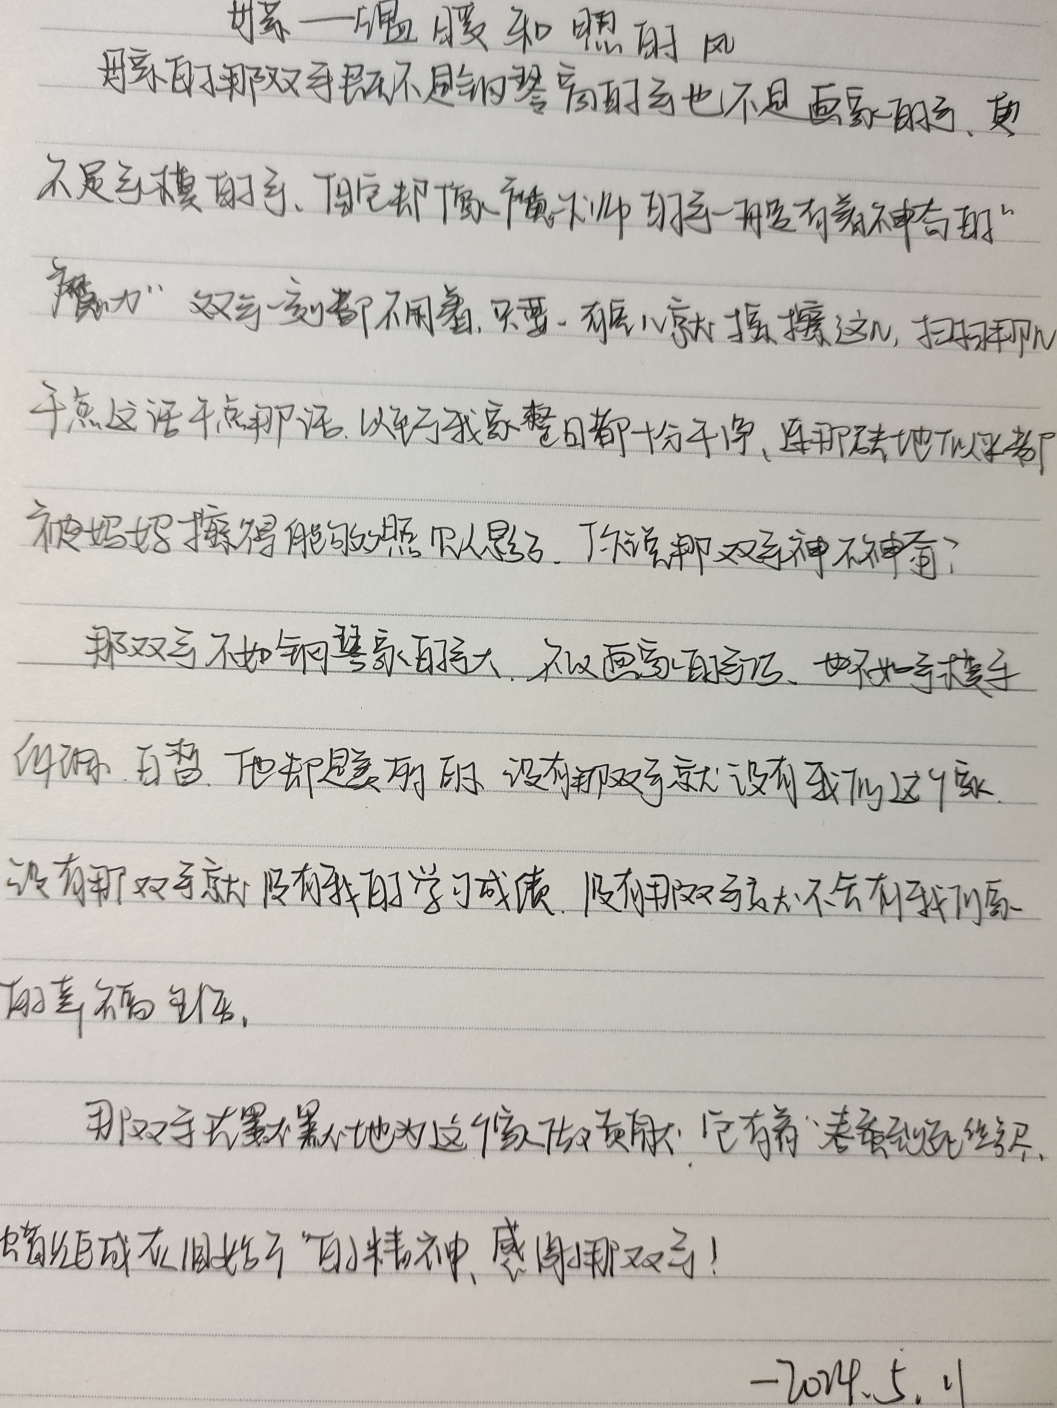 母亲——温暖和煦的风
母亲的那双手既不是钢琴家的手也不是画家的手、更
不是手模的手、但它却像魔术师的手一般有着神奇的“
魔力”双手一刻都不闲着,只要一有空儿就擦擦这儿,扫扫那儿
干点这活干点那活.以至于我家整日都十分干净、连那砖地似乎都
被妈妈擦得能够照见人影了.你说那双手神不神奇?
那双手不如钢琴家的手大.不如画家的手巧、也不如手模手
纤细.白皙.但却是美丽的 没有那双手就没有我们这个家.
没有那双手就没有我的学习成绩.没有那双手就不会有我们家
的幸福生活.
那双手默默地为这个家做贡献.它有着“春蚕到死丝方尽.
蜡炬成灰泪始干”的精神、感谢那双手!
—2024.5.11